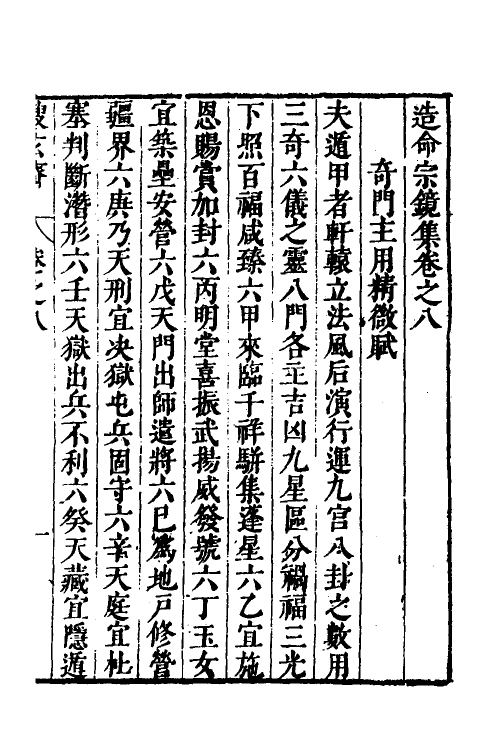 造命宗鏡集卷之八
奇門主用精微賦
夫遁甲者軒轅立法風后演行運九宫八卦之數用
三奇六儀之靈八門各主吉凶九星區分禍福三光
下照百福咸臻六甲來臨千祥駢集蓬星六乙宜施
恩賜賞加封六丙明堂喜振武揚威發號六丁玉女
宜築壘安營六戊天門出師遣將六巳爲地戸修營
疆界六庚乃天刑宜决獄屯兵固守六辛天庭宜杜
塞判斷潛形六壬天獄出兵不利六癸天藏宜隱遁
玄齋 卷之八 一